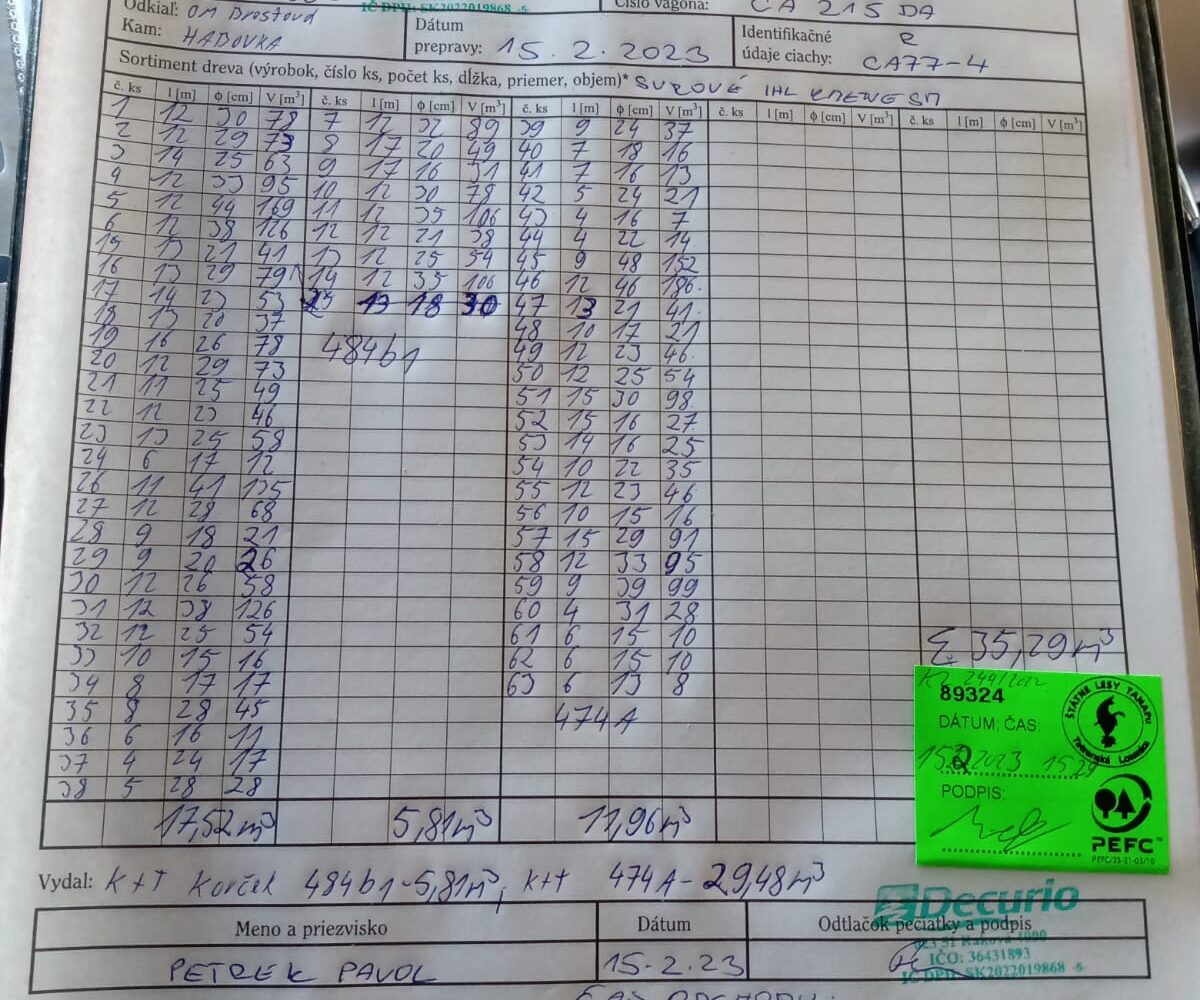 Odkiaľ: OM Brestová
IČ DPH: SK2022019868 -5-
Číslo vagóna: CA 215 DA
Kam: HABOVKA
Dátum
prepravy: 15.2.2023
Identifikačné
údaje ciachy: CA77-4
Sortiment dreva (výrobok, číslo ks, počet ks, dĺžka, priemer, objem)* SUROVÉ IHL KMENE SM
č. ks l [m] ϕ [cm] V [m³] č. ks l [m] ϕ [cm] V [m³] č. ks l [m] ϕ [cm] V [m³] č. ks l [m] ϕ [cm] V [m³] č. ks l [m] ϕ [cm] V [m³]
1 12 30 78 7 12 32 89 39 9 24 37
2 12 29 73 8 17 20 49 40 7 18 16
3 14 25 63 9 17 16 31 41 7 16 13
4 12 33 95 10 12 30 78 42 5 24 21
5 12 44 169 11 12 35 106 43 4 16 7
6 12 38 126 12 12 21 38 44 4 22 14
15 13 21 41 13 12 25 54 45 9 48 152
16 13 29 79 14 12 35 106 46 12 46 186
17 14 23 53 13 18 30 47 13 21 41
18 13 20 37 48 10 17 21
19 16 26 78 484b1 49 12 23 46
20 12 29 73 50 12 25 54
21 11 25 49 51 15 30 98
22 12 23 46 52 15 16 27
23 13 25 58 53 14 16 25
24 6 17 12 54 10 22 35
26 11 41 135 55 12 23 46
27 12 28 68 56 10 15 16
28 9 18 21 57 15 29 91
29 9 20 26 58 12 33 95
30 12 26 58 59 9 39 99
31 12 38 126 60 4 31 28
32 12 25 54 61 6 15 10
33 10 15 16 62 6 15 10
34 8 17 17 63 6 13 8
35 8 28 45 474A
36 6 16 11
37 4 24 17
38 5 28 28
Σ 35,29m³
89324
DÁTUM; ČAS:
15 2 2023 15 29
PODPIS:
ŠTÁTNE LESY TANAPU
Tatranská Lomnica
PEFC
PEFC/23-21-03/10
17,52m³ 5,81m³ 11,96m³
Vydal: K+T Korček 484b1-5,81m³, K+T 474A-29,48m³
Decurio
Meno a priezvisko Dátum Odtlačok pečiatky a podpis
PETREK PAVOL 15.2.23
IČO: 36431893
IČ DPH: SK2022019868 -5-
ČAS ODCHODU: